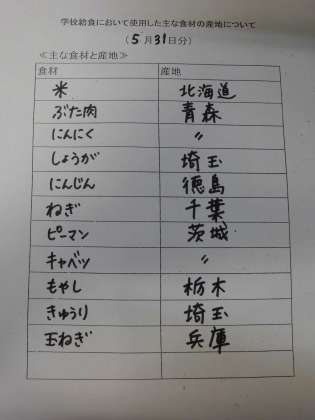 学校給食において使用した主な食材の産地について
(5月31日分)
≪主な食材と産地≫
食材 産地
米 北海道
ぶた肉 青森
にんにく 〃
しょうが 埼玉
にんじん 徳島
ねぎ 千葉
ピーマン 茨城
キャベツ 〃
もやし 栃木
きゅうり 埼玉
玉ねぎ 兵庫